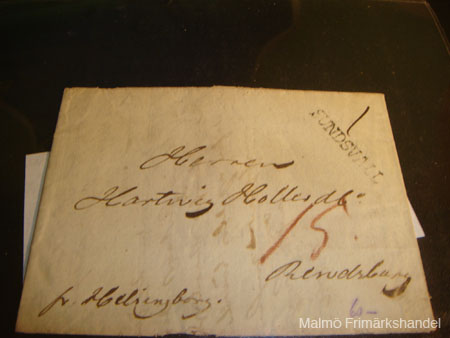 SUNDSVALL
Herren
Hartwig
15
Rendsburg
pr. Helsingborg.
Malmö Frimärkshandel